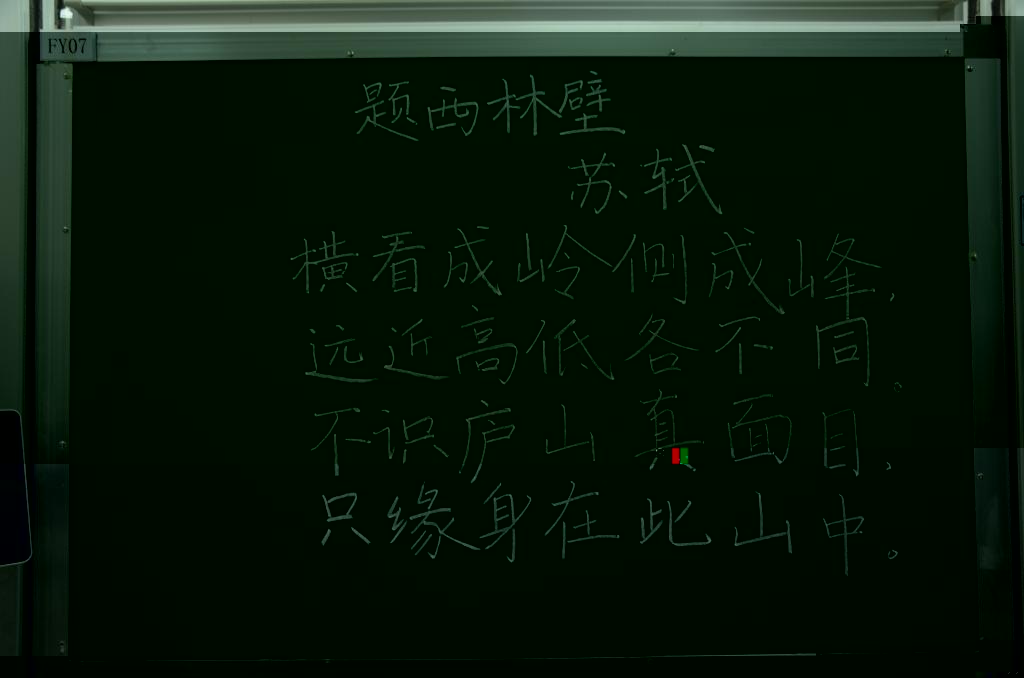 FY07
题西林壁
苏轼
横看成岭侧成峰,
远近高低各不同。
不识庐山真面目,
只缘身在此山中。